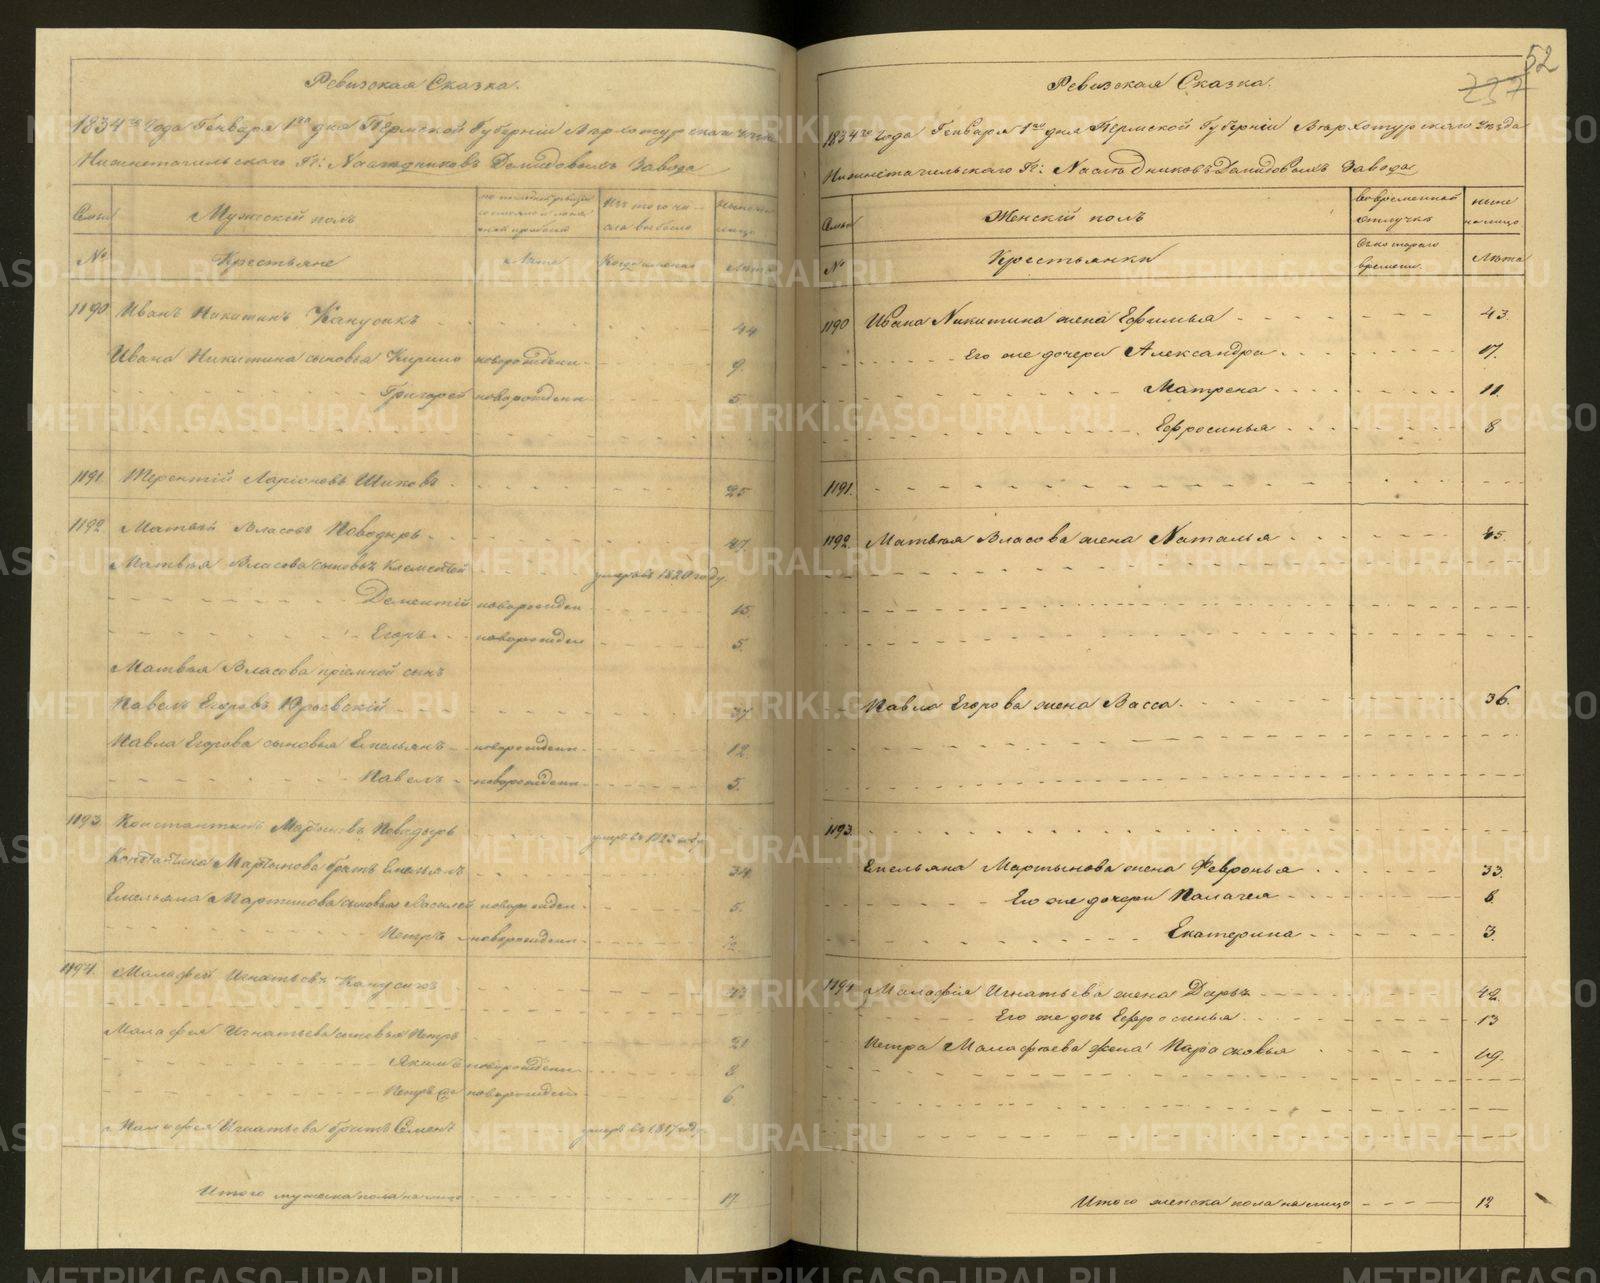 52
237
Ревизская Сказка.
1834го года Генваря 1го дня Пермской Губерніи Верхотурскаго Уезда
Нижнетагильского Гг: Наследниковъ Демидовыхъ Завода
Семьи
Мужескій полъ
Изъ того числа выбыло
Ныне на лицо
№
Крестьяне
Лета
Когда именно
Лета
1190 Иванъ Никитинъ Канусикъ 44
Ивана Никитина сыновья Кирило новорожден 9.
Григорей новорожден 5
1191 Терентій Ларіоновъ 25
1192 Матвей Власовъ Поводырь 47
Матвея Власова сыновъя Климентей умеръ въ 1820 году
Дементій новорожден 15.
Егоръ новорожден 5.
Матвея Власова пріемной сынъ
Павелъ Егоровъ 37
Павла Егорова сыновья Емельянъ новорожден 12
Павелъ новорожден 5.
1193 Константинъ Мартыновъ Поводырь умеръ въ 1823 году
Константина Мартынова братъ Емельянъ 34
Емельяна Мартинова сыновья Василей новорожден 5.
Петръ новорожден 2.
1194. Малафей Игнатьевъ 43
Малафея Игнатьева сыновья Петръ 21
Якимъ новорожден 8
Петръ 2й новорожден 6
Малафея Игнатьева братъ Семенъ умеръ въ 1817 году
Итого мужеска пола на лицо 17
Ревизская Сказка.
1834го года Генваря 1го дня Пермской Губерніи Верхотурскаго Уезда
Нижнетагильскаго Гг: Наследниковъ Демидовыхъ Завода
Семьи
Женскій полъ
Во временной отлучке
ныне на лицо
№
Крестьянки
Съ котораго времени.
Лета
1190 Ивана Никитина жена Ефимья 43.
Его же дочери Александра 17.
Матрена 11.
Ефросинья 8
1191.
1192. Матвея Власова жена Наталья 45.
Павла Егорова жена Васса. 36.
1193.
Емельяна Мартынова жена Февронья 33.
Его же дочери Палагея 6.
Екатерина 3.
1194 Малафея Игнатьева жена Дарья 42.
Его же дочь Ефросинья 13
Петра Малафеева жена Парасковья 19.
Итого женска пола на лицо 12
METRIKI.GASO-URAL.RU